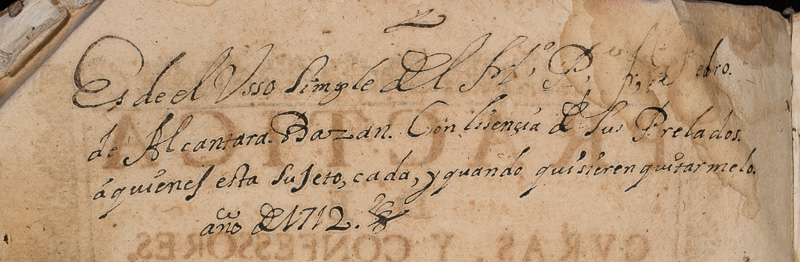 2
Es de el Usso simple del Hr.º P, fr,
de Alcantara. Bazan. Con lisençia de sus Prelados.
á quienes esta sujeto, cada, y quando quisieren quitarmelo.
año de 1712.
PRACTICA
CVRAS, Y CONFESSORES,